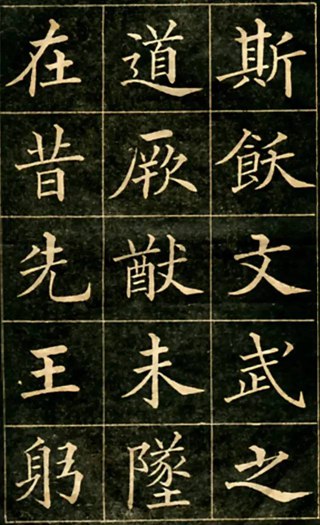 斯飫文武之
道厥猷未墜
在昔先王躬